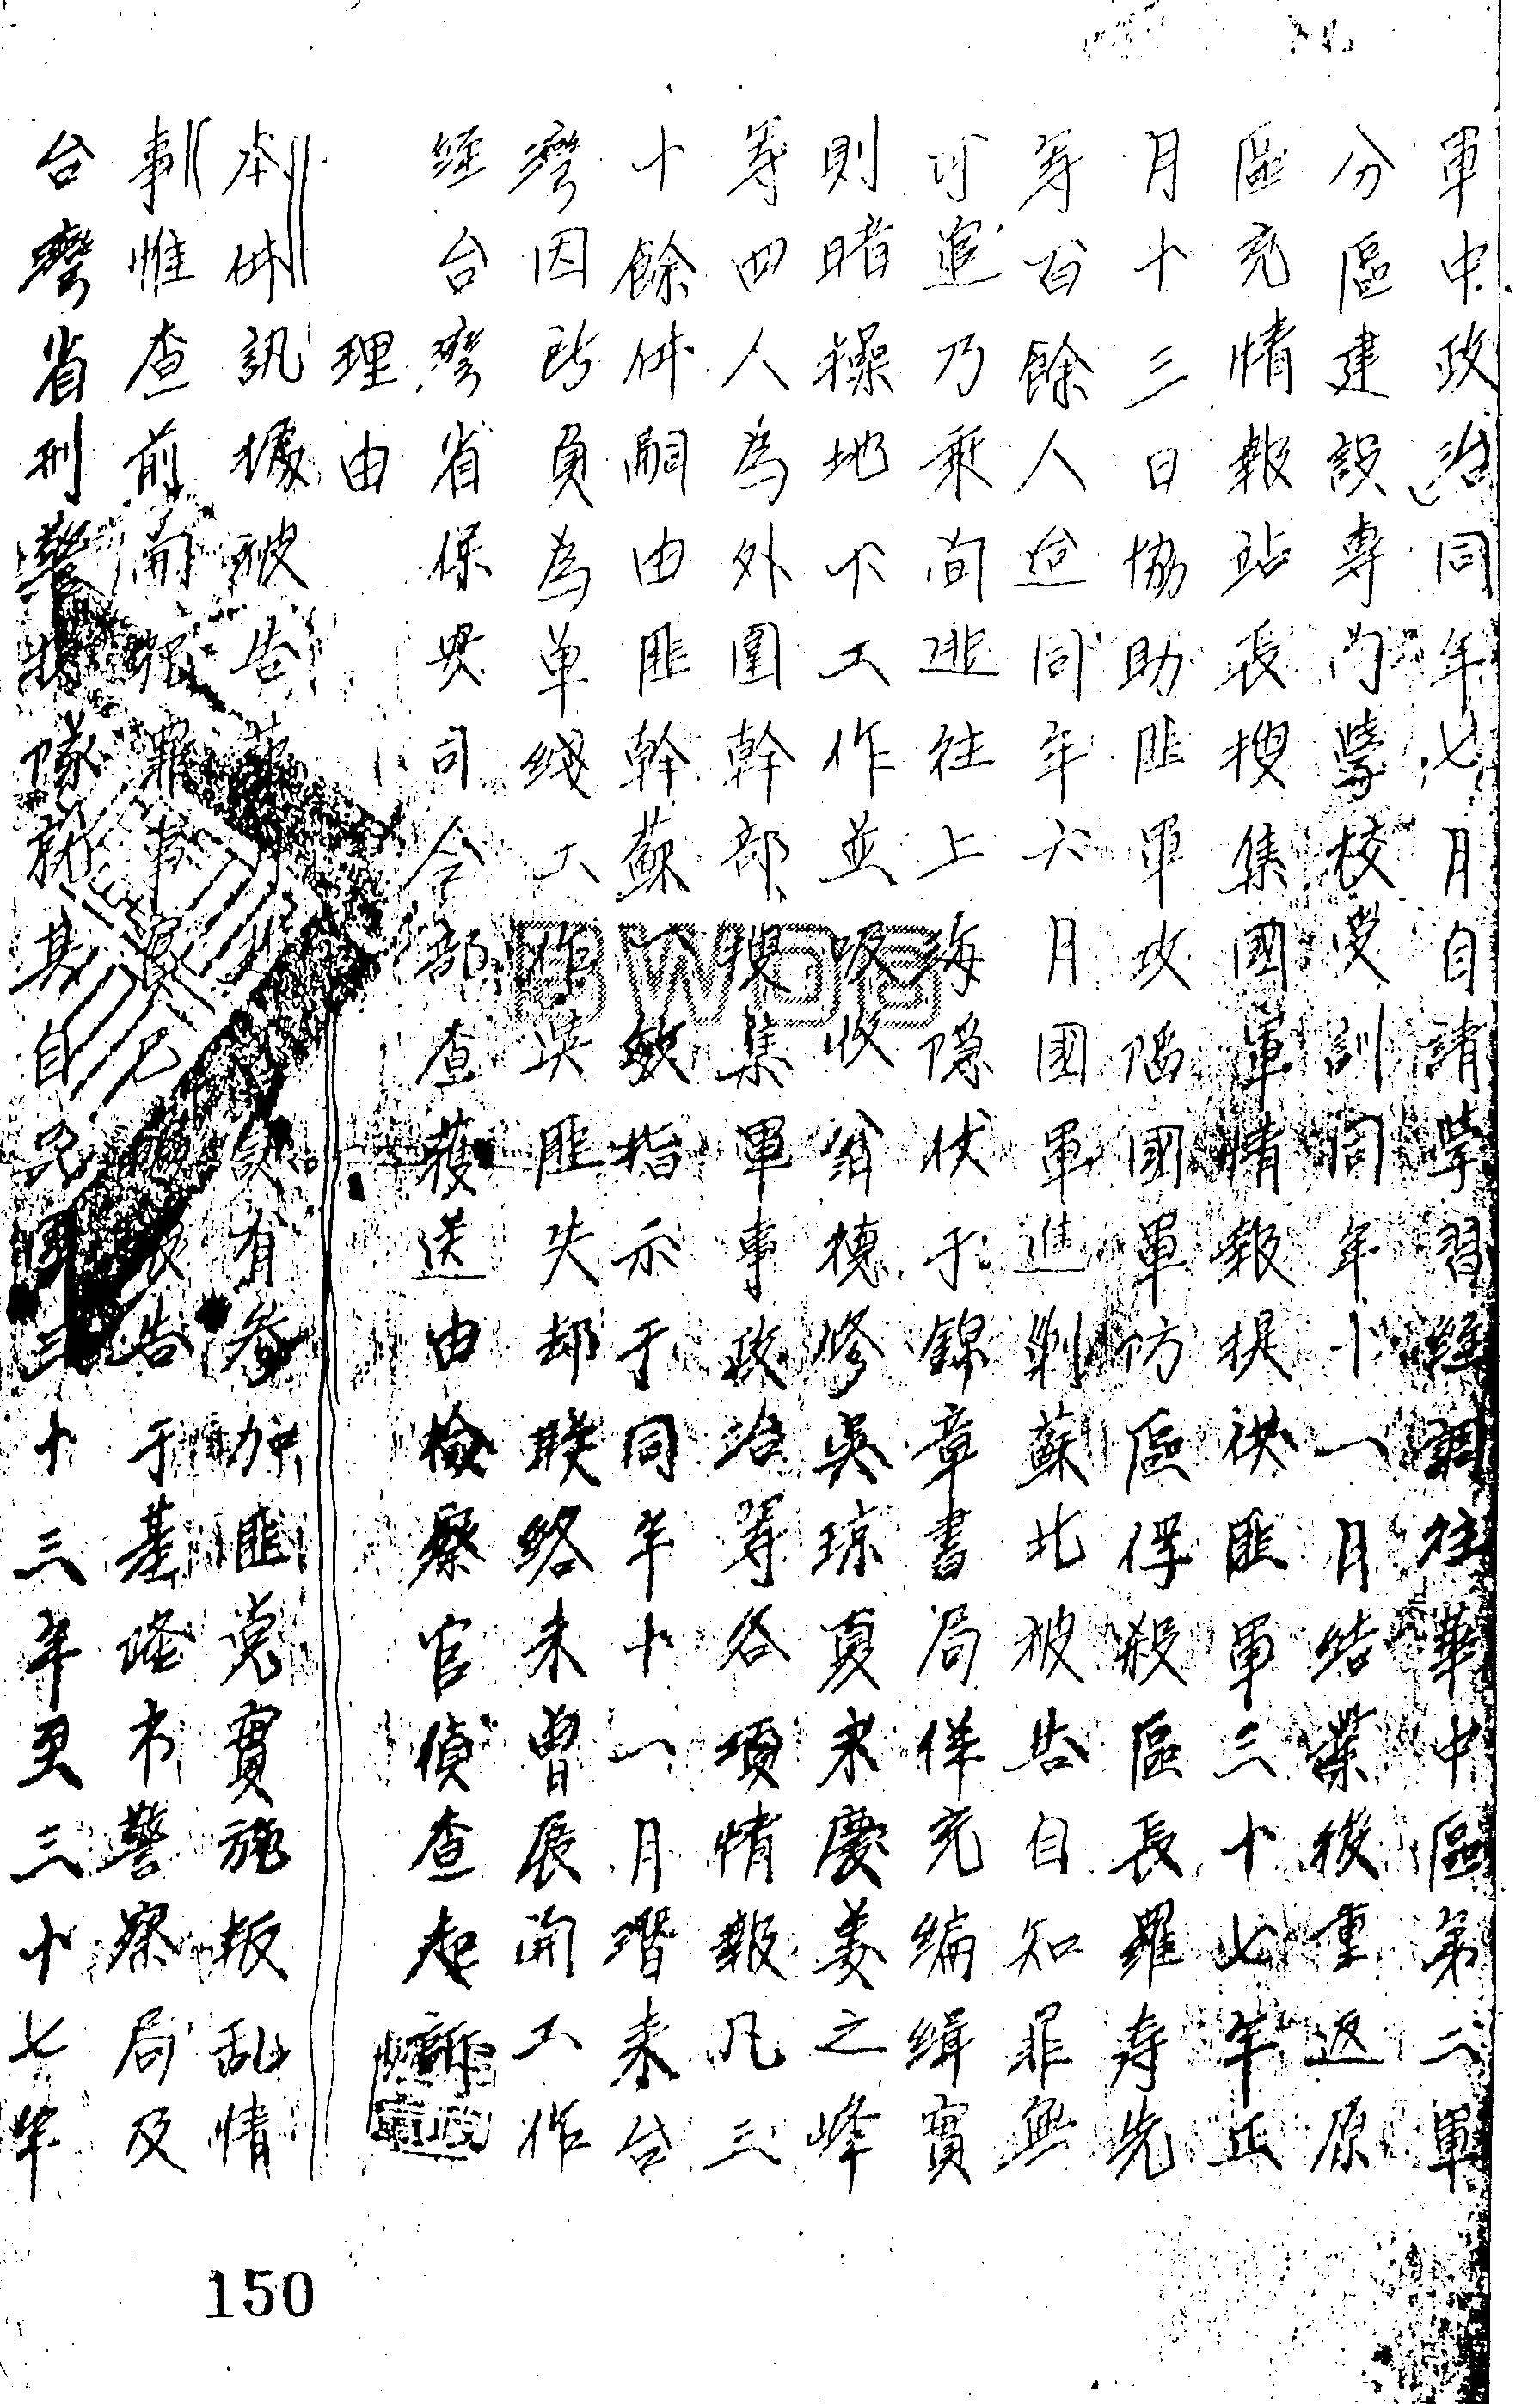 軍中政治同年七月自請學習經調往華中區第二軍
分區建設專門學校受訓同年十一月結業後重返原
區充情報站長搜集國軍情報提供匪軍三十七年正
月十三日協助匪軍攻陷國軍防區俘殺區長羅寿先
等百餘人迨同年六月國軍進剿蘇北被告自知罪無
可逭乃乘间逃往上海隐伏于锦章書局佯充编缉實
則暗操地下工作並吸收翁德修吳琼夏来慶姜之峰
等四人為外圍幹部搜集軍事政治等各項情報凡三
十餘件嗣由匪幹蘇 效指示于同年十一月潛来台
灣因所負為单线工作與匪失却联络未曾展開工作
經台灣省保安司令部查獲送由檢察官偵查起訴
理由
本件訊據被告 有參加匪党實施叛乱情
事惟查前開 罪事 告于基隆市警察局及
台灣省刑警 隊 其自 三十三年至三十七年
BWCS
150